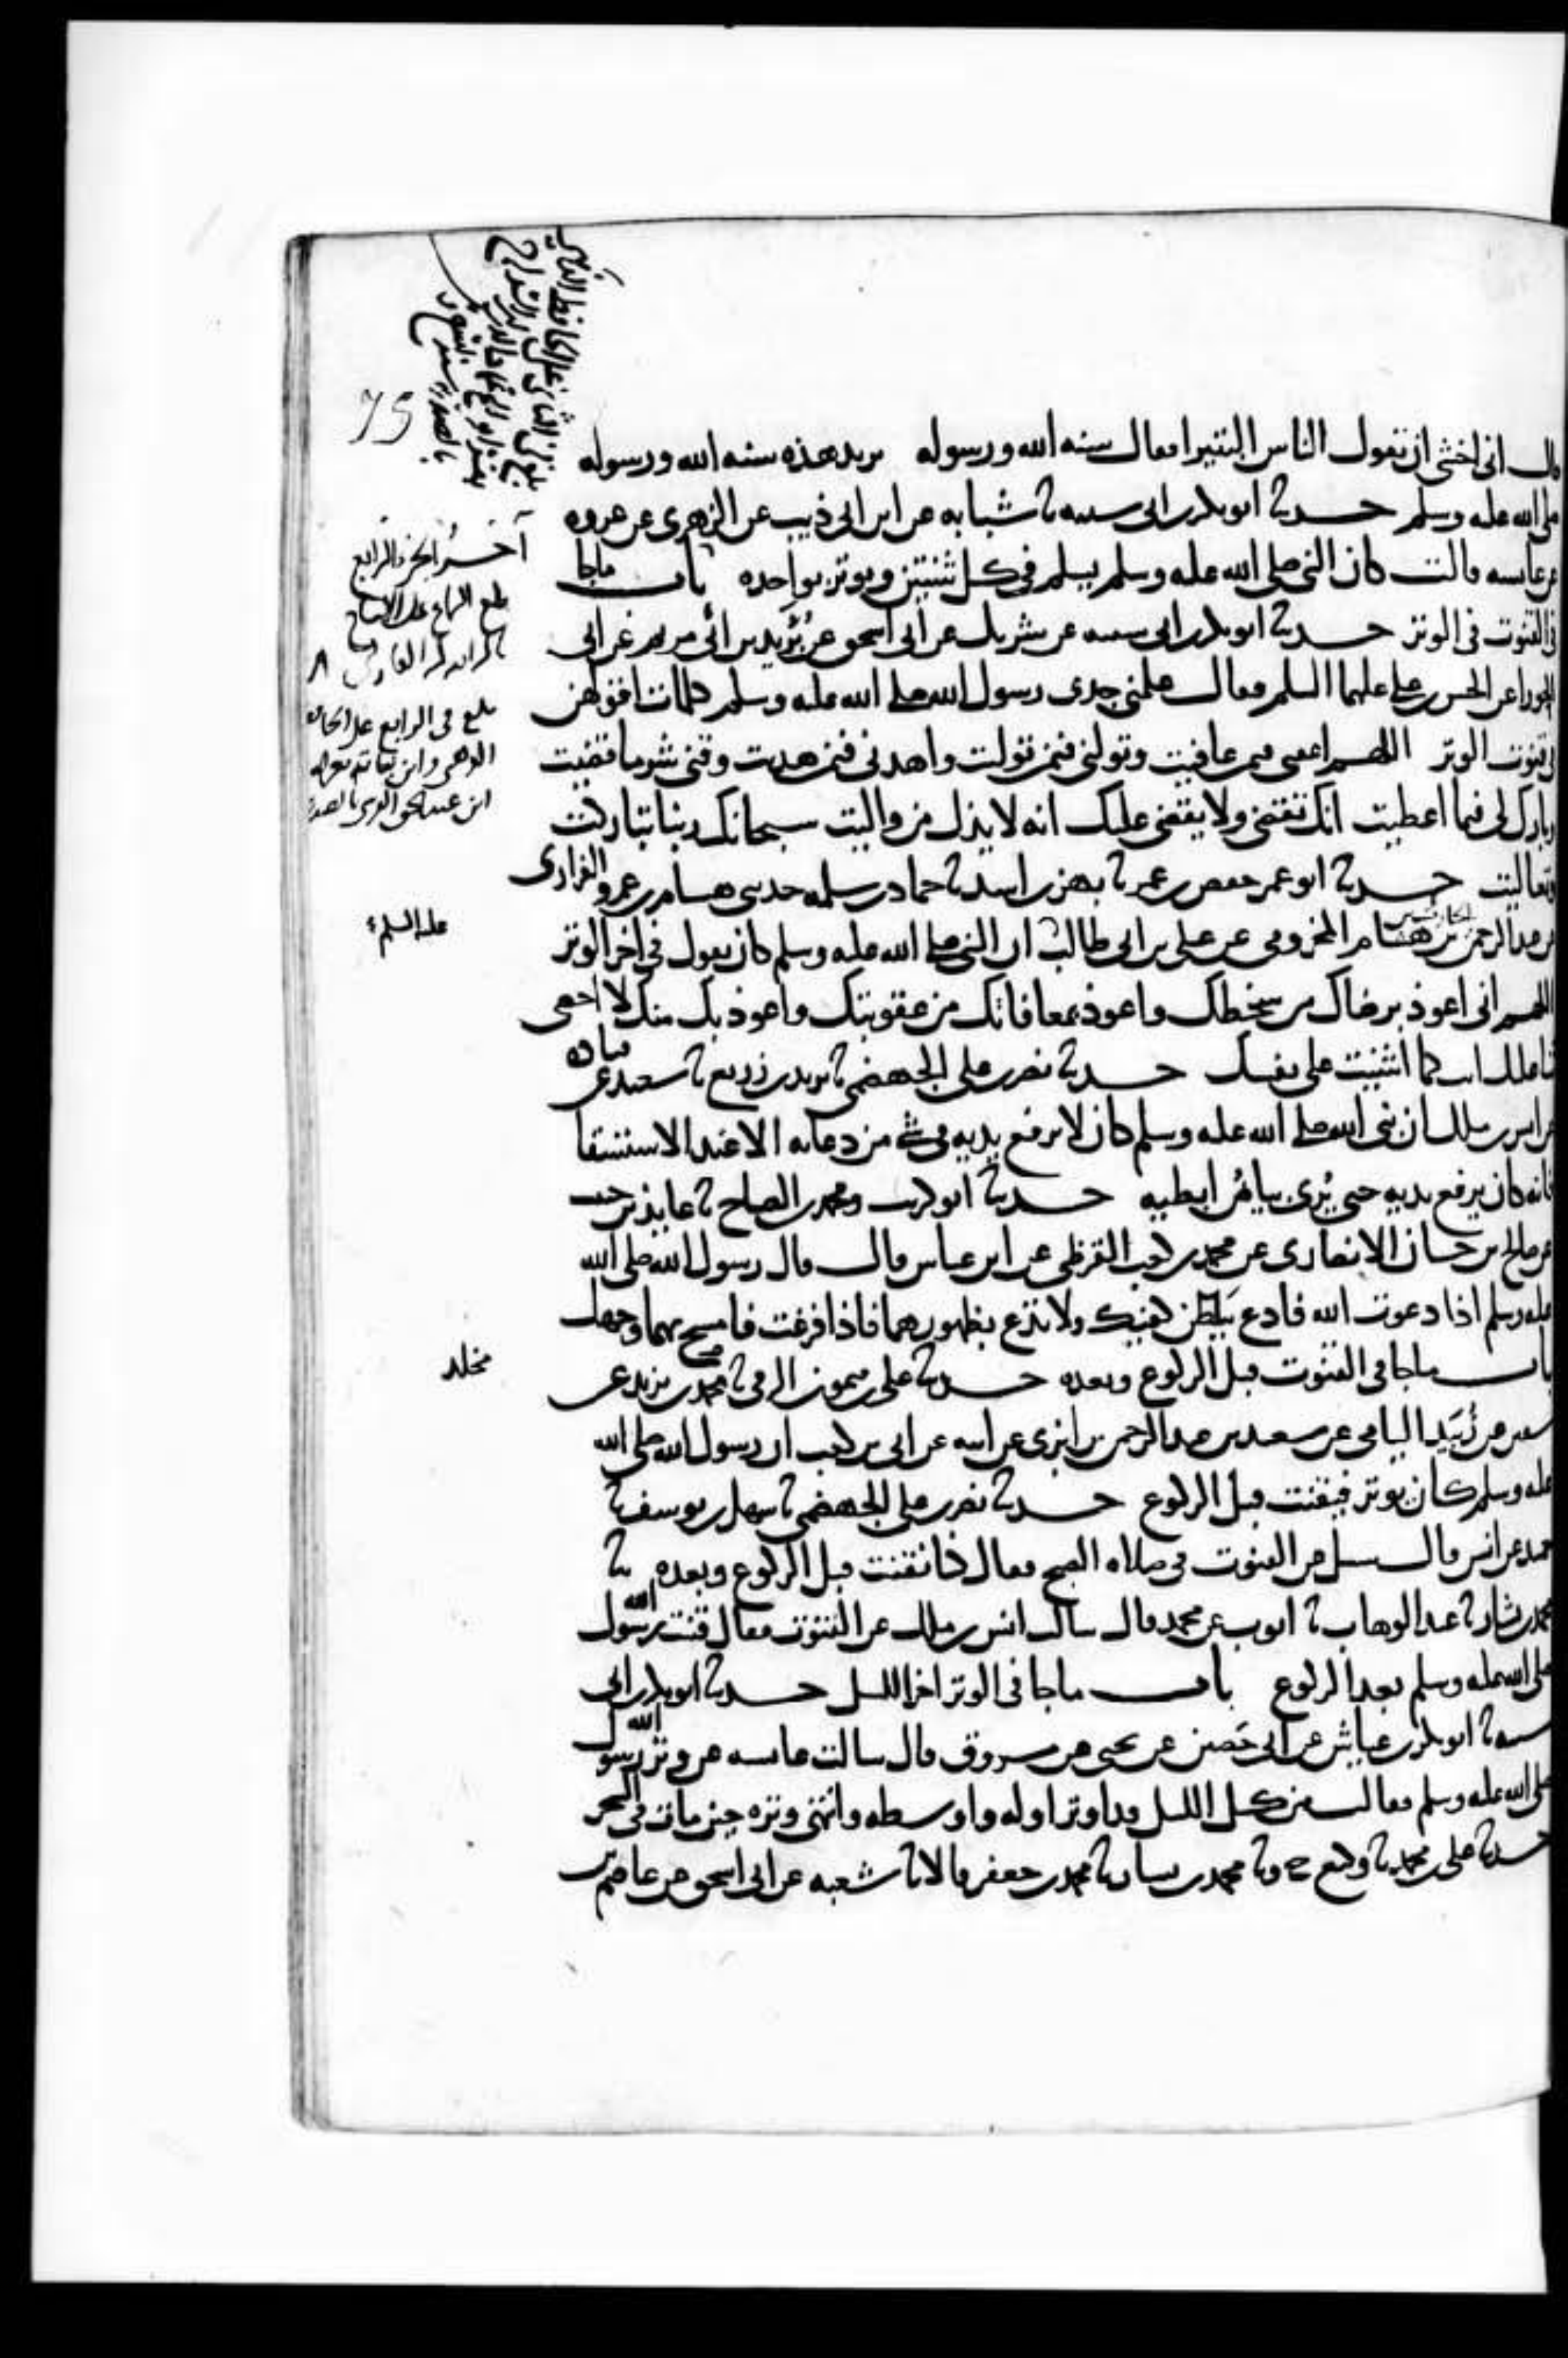 قال اني اخشى ان تقول الناس البتيرا فقال سنه الله ورسوله يريد هذه سنه الله ورسوله
صلى الله عليه وسلم حدثنا ابو بكر بن ابي شيبه نا شبابه عن ابن ابي ذيب عن الزهري عن عروه
عن عايشه قالت كان النبي صلى الله عليه وسلم يسلم في كل ثنتين ويوتر بواحده باب ماجا
في القنوت في الوتر حدثنا ابو بكر بن ابي شيبه عن شريك عن ابي اسحق عن بُرَيد بن ابي مريم عن ابي
الحورا عن الحسن بن علي عليهما السلم فقال علمني جدي رسول الله صلى الله عليه وسلم كلمات اقولهن
في قنوت الوتر اللهم اعفني فيمن عافيت وتولني فيمن تولت واهدني فيمن هديت وقني شر ما قضيت
وبارك لي فيما اعطيت انك تقضي ولا يقضى عليك انه لا يذل من واليت سبحانك ربنا تباركت
وتعاليت حدثنا ابو عمر حفص بن عمر نا بهز بن اسد نا حماد بن سلمه حدثني هشام بن عمرو الفزاري
عن عبد الرحمن بن الحارث بن هشام المخزومي عن علي بن ابي طالب ان النبي صلى الله عليه وسلم كان يقول في اخر الوتر
اللهم اني اعوذ برضاك من سخطك واعوذ بمعافاتك من عقوبتك واعوذ بك منك لا احصي
ثنا عليك انت كما اثنيت على نفسك حدثنا نصر بن علي الجهضمي نا يزيد بن زريع نا سعيد عن قتاده
عن انس بن ملك ان نبي الله صلى الله عليه وسلم كان لا يرفع يديه في شي من دعايه الا عند الاستسقا
فانه كان يرفع يديه حتى يُرى بياضُ ابطيه حدثنا ابو كريب ومحمد بن الصباح نا عايذ بن حبيب
عن صالح بن حسان الانصاري عن محمد بن كعب القرظي عن ابن عباس قال قال رسول الله صلى الله
عليه وسلم اذا دعوت الله فادع ببطن كفيك ولا تدع بظهورهما فاذا فرغت فامسح بهما وجهك
باب ماجا في القنوت قبل الركوع وبعده حدثنا علي بن ميمون الرقي نا محمد بن يزيد عن
سفين عن زُبَيد اليامي عن سعيد بن عبد الرحمن بن ابزى عن ابيه عن ابي بن كعب ان رسول الله صلى الله
عليه وسلم كان يوتر فيقنت قبل الركوع حدثنا نصر بن علي الجهضمي نا سهل بن يوسف نا
حميد عن انس قال سيل عن القنوت في صلاه الصبح فقال كنا نقنت قبل الركوع وبعده نا
محمد بن بشار نا عبد الوهاب نا ايوب عن محمد قال سالت انس بن ملك عن القنوت فقال قنت رسول الله
صلى الله عليه وسلم بعد الركوع باب ماجا في الوتر اخر الليل حدثنا ابو بكر بن ابي
شيبه نا ابو بكر بن عياش عن ابي حَصين عن يحيى عن مسروق قال سالت عايشه عن وتر رسول الله
صلى الله عليه وسلم فقالت من كل الليل قد اوتر اوله واوسطه وانتهى وتره حين مات في السحر
حدثنا علي بن محمد نا وكيع ح ونا محمد بن بشار نا محمد بن جعفر قالا نا شعبه عن ابي اسحق عن عاصم بن
75
آخر الجزء الرابع
عليه السلم
مخلد